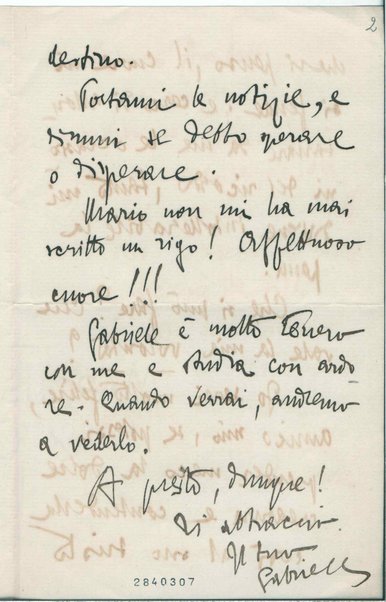 2
destino.
Portami le notizie, e
dimmi se debbo sperare
o disperare.
Mario non mi ha mai
scritto un rigo! Affettuoso
cuore!!!
Gabriele è molto tenero
con me e studia con ardo
re. Quando verrai, andremo
a vederlo.
A presto, dunque!
Ti abbraccio.
Il tuo
Gabriele
2840307